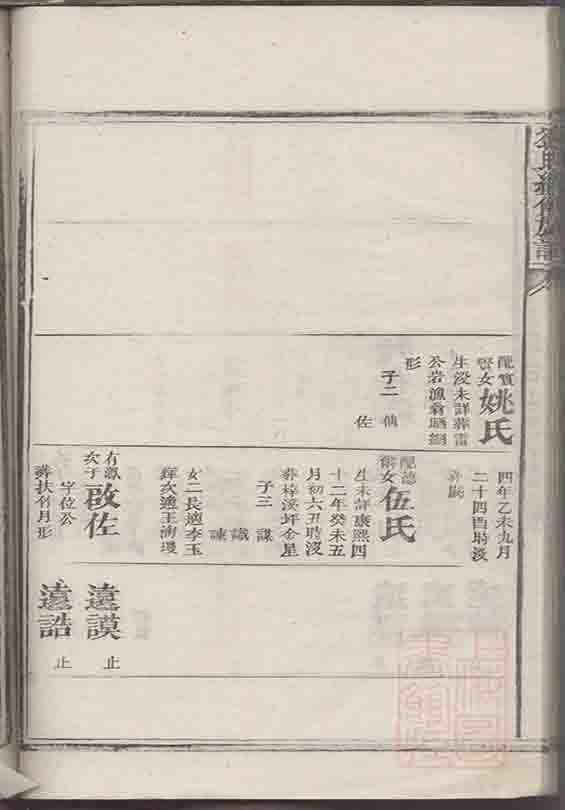 配賓
賢女
姚氏
生沒未詳葬雷
公岩漁翁晒網
形
子二 仙
佐
四年乙未九月
二十四酉時沒
配認
伍氏
生未詳康熙四
十二年癸未五
月初六丑時沒
葬樟溪坪金星
子三 謀
識
諫
女二長適李玉
輝次適王海環
次子
啟佐
字位公
葬扶竹月形
遠謨 止
遠誥 止